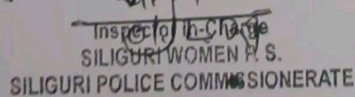 Inspector in-Charge
SILIGURI WOMEN P. S.
SILIGURI POLICE COMMISSIONERATE